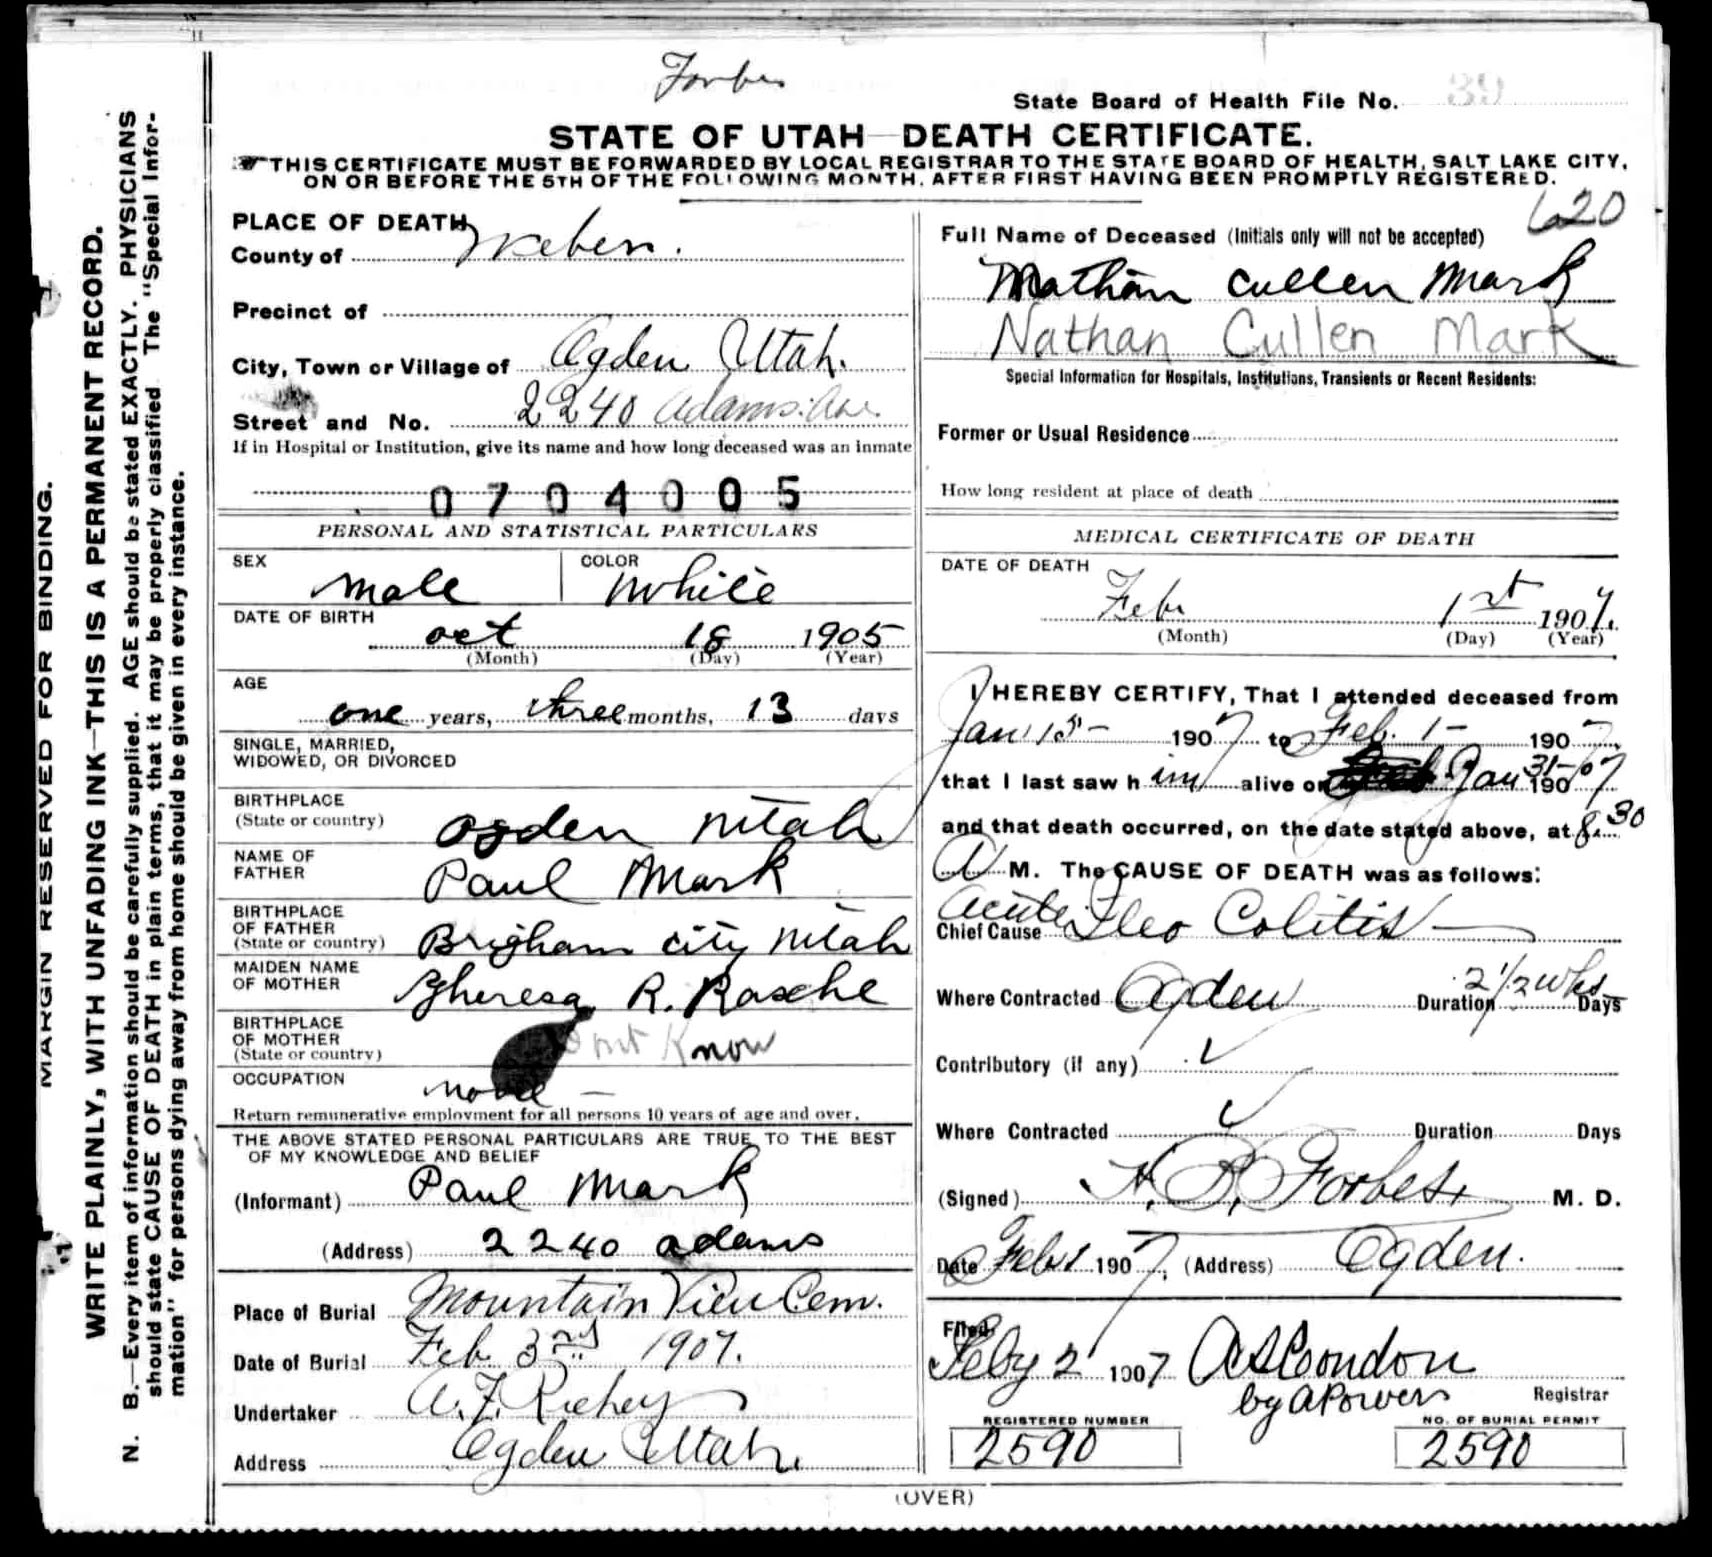 Forbes
State Board of Health File No. 39
STATE OF UTAH—DEATH CERTIFICATE.
THIS CERTIFICATE MUST BE FORWARDED BY LOCAL REGISTRAR TO THE STATE BOARD OF HEALTH, SALT LAKE CITY,
ON OR BEFORE THE 5TH OF THE FOLLOWING MONTH, AFTER FIRST HAVING BEEN PROMPTLY REGISTERED.
MARGIN RESERVED FOR BINDING.
WRITE PLAINLY, WITH UNFADING INK—THIS IS A PERMANENT RECORD.
N. B.—Every item of information should be carefully supplied. AGE should be stated EXACTLY. PHYSICIANS
should state CAUSE OF DEATH in plain terms, that it may be properly classified. The "Special Infor-
mation" for persons dying away from home should be given in every instance.
PLACE OF DEATH
County of Weber.
Precinct of
City, Town or Village of Ogden Utah.
Street and No. 2240 Adams. Ave.
If in Hospital or Institution, give its name and how long deceased was an inmate
0704005
PERSONAL AND STATISTICAL PARTICULARS
SEX male COLOR White
DATE OF BIRTH oct 18 1905
(Month) (Day) (Year)
AGE
one years, three months, 13 days
SINGLE, MARRIED,
WIDOWED, OR DIVORCED
BIRTHPLACE
(State or country) Ogden Utah
NAME OF
FATHER Paul Mark
BIRTHPLACE
OF FATHER
(State or country) Brigham City Utah
MAIDEN NAME
OF MOTHER Theresa R. Rasche
BIRTHPLACE
OF MOTHER
(State or country) Dont Know
OCCUPATION none —
Return remunerative employment for all persons 10 years of age and over.
THE ABOVE STATED PERSONAL PARTICULARS ARE TRUE TO THE BEST
OF MY KNOWLEDGE AND BELIEF
(Informant) Paul Mark
(Address) 2240 adams
Place of Burial Mountain View Cem.
Date of Burial Feb. 3rd 1907.
Undertaker A. F. Richey
Address Ogden Utah.
620
Full Name of Deceased (Initials only will not be accepted)
Nathan Cullen Mark
Nathan Cullen Mark
Special Information for Hospitals, Institutions, Transients or Recent Residents:
Former or Usual Residence
How long resident at place of death
MEDICAL CERTIFICATE OF DEATH
DATE OF DEATH
Feb 1st 1907.
(Month) (Day) (Year)
I HEREBY CERTIFY, That I attended deceased from
Jan 15- 1907 to Feb. 1- 1907
that I last saw him alive on Jan 31-07 1907
and that death occurred, on the date stated above, at 8.30
A M. The CAUSE OF DEATH was as follows:
Chief Cause Acute Ileo Colitis
Where Contracted Ogden Duration 2 1/2 wks Days
Contributory (if any)
Where Contracted Duration Days
(Signed) H. B. Forbes, M. D.
Date Feb 1 1907, (Address) Ogden.
Filed
Feby 2 1907 A S Condon
by A Powers Registrar
REGISTERED NUMBER NO. OF BURIAL PERMIT
2590 2590
(OVER)